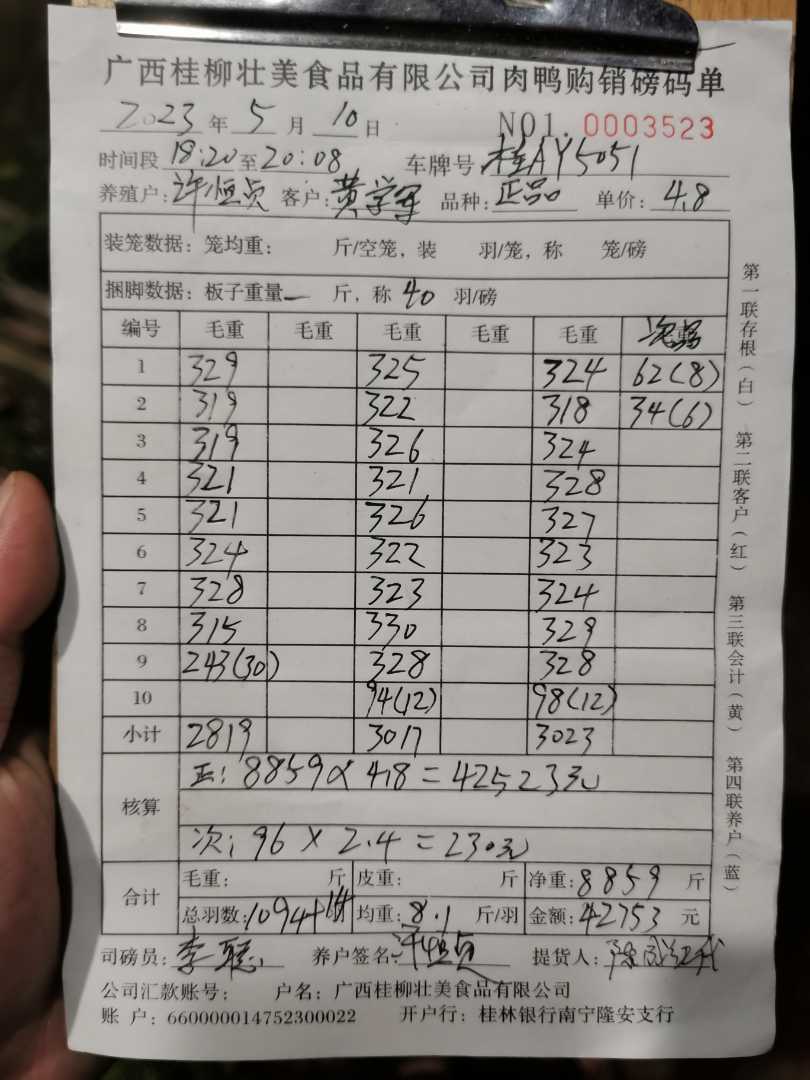 广西桂柳壮美食品有限公司肉鸭购销磅码单
2023 年 5 月 10 日 NO1. 0003523
时间段 18:20 至 20:08 车牌号 桂AY5051
养殖户: 许恒贞 客户: 黄学军 品种: 正品 单价: 4.8
装笼数据: 笼均重: 斤/空笼, 装 羽/笼, 称 笼/磅
捆脚数据: 板子重量 — 斤, 称 40 羽/磅
编号 毛重 毛重 毛重 毛重 毛重
1 329 325 324 62(8)
2 319 322 318 34(6)
3 319 326 324
4 321 321 328
5 321 326 327
6 324 322 323
7 328 323 324
8 315 330 329
9 243(30) 328 328
10 94(12) 98(12)
小计 2819 3017 3023
核算 正: 8859 × 4.8 = 42523元
次: 96 × 2.4 = 230元
合计 毛重: 斤 皮重: 斤 净重: 8859 斤
总羽数: 1094+14 均重: 8.1 斤/羽 金额: 42753 元
司磅员: 李聪 养户签名: 许恒贞 提货人:
公司汇款账号: 户名: 广西桂柳壮美食品有限公司
账 户: 660000014752300022 开户行: 桂林银行南宁隆安支行
第一联存根(白)
第二联客户(红)
第三联会计(黄)
第四联养户(蓝)